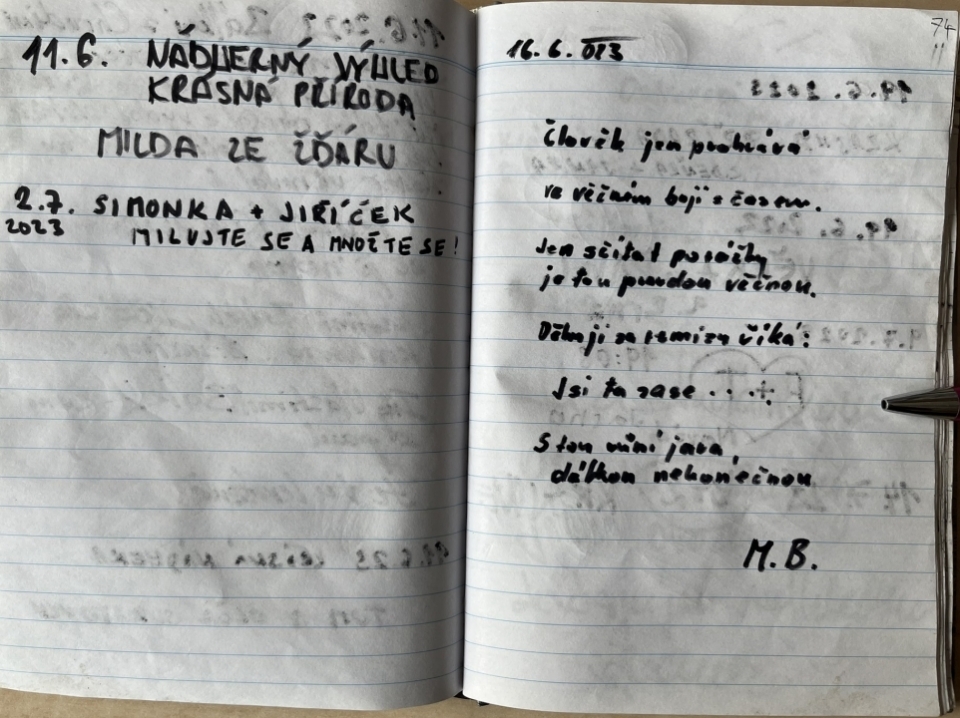 11.6. NÁDHERNÝ VÝHLED
KRÁSNÁ PŘÍRODA
MILDA ZE ŽĎÁRU
2.7. SIMONKA + JIŘÍČEK
2023 MILUJTE SE A MNOŽTE SE!
74
16.6.
Člověk jen prohrává
ve věčném boji s časem.
Jen sčítat porážky
je tou pravdou věčnou.
Děkuji za remízu říká:
Jsi tu zase . . .
S tou vůní jara,
dálkou nekonečnou
M.B.